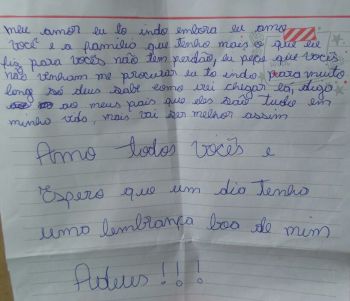 meu amor eu to indo embora eu amo
você e a familia que tenho mais o que eu
fiz para vocês não tem perdão, eu peço que vocês
não venham me procurar eu to indo para muito
longe só deus sabe como vei chegar la, diga
ao meus pais que eles são tudo em
minha vida, mais vai ser melhor assim
Amo todos vocês e
Espero que um dia tenha
uma lembrança boa de mim
Adeus!!!